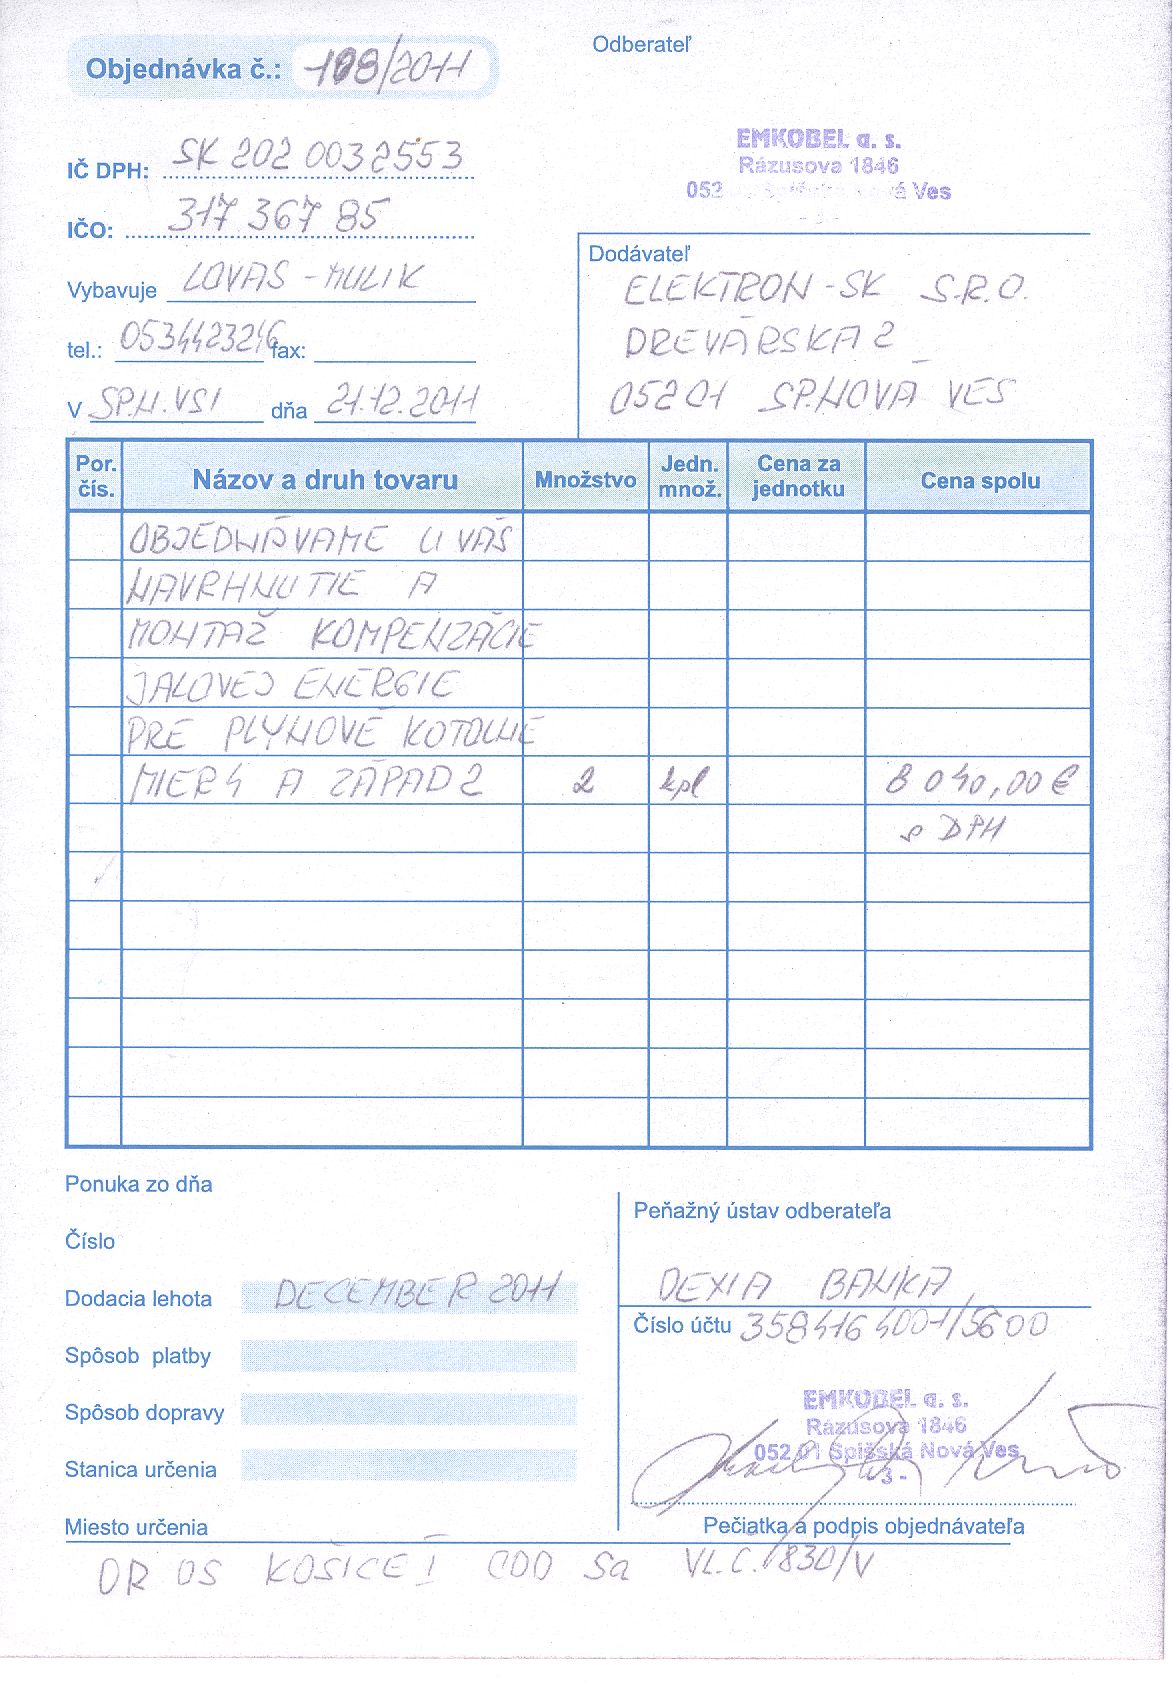 Objednávka č.: 108/2011
Odberateľ
EMKOBEL a. s.
Rázusova 1846
052 Spišská Nová Ves
IČ DPH: SK 202 0032553
IČO: 317 367 85
Vybavuje LOVAS - MULIK
tel.: 0534423216 fax:
V SP.N.VSI dňa 21.12.2011
Dodávateľ
ELEKTRON-SK S.R.O.
DREVÁRSKA 2
05201 SP.NOVÁ VES
Por. čís. Názov a druh tovaru Množstvo Jedn. množ. Cena za jednotku Cena spolu
OBJEDNÁVAME U VÁS
NAVRHNUTIE A
MONTÁŽ KOMPENZÁCIE
JALOVEJ ENERGIE
PRE PLYNOVÉ KOTOLNE
MIER 4 A ZÁPAD 2 2 kpl 8 040,00 €
s DPH
Ponuka zo dňa
Číslo
Dodacia lehota DECEMBER 2011
Spôsob platby
Spôsob dopravy
Stanica určenia
Miesto určenia
Peňažný ústav odberateľa
DEXIA BANKA
Číslo účtu 3584164001/5600
EMKOBEL a. s.
Rázusova 1846
052 01 Spišská Nová Ves
- 3 -
Pečiatka a podpis objednávateľa
OR OS KOŠICE I ODD Sa VL.Č. 1830/V